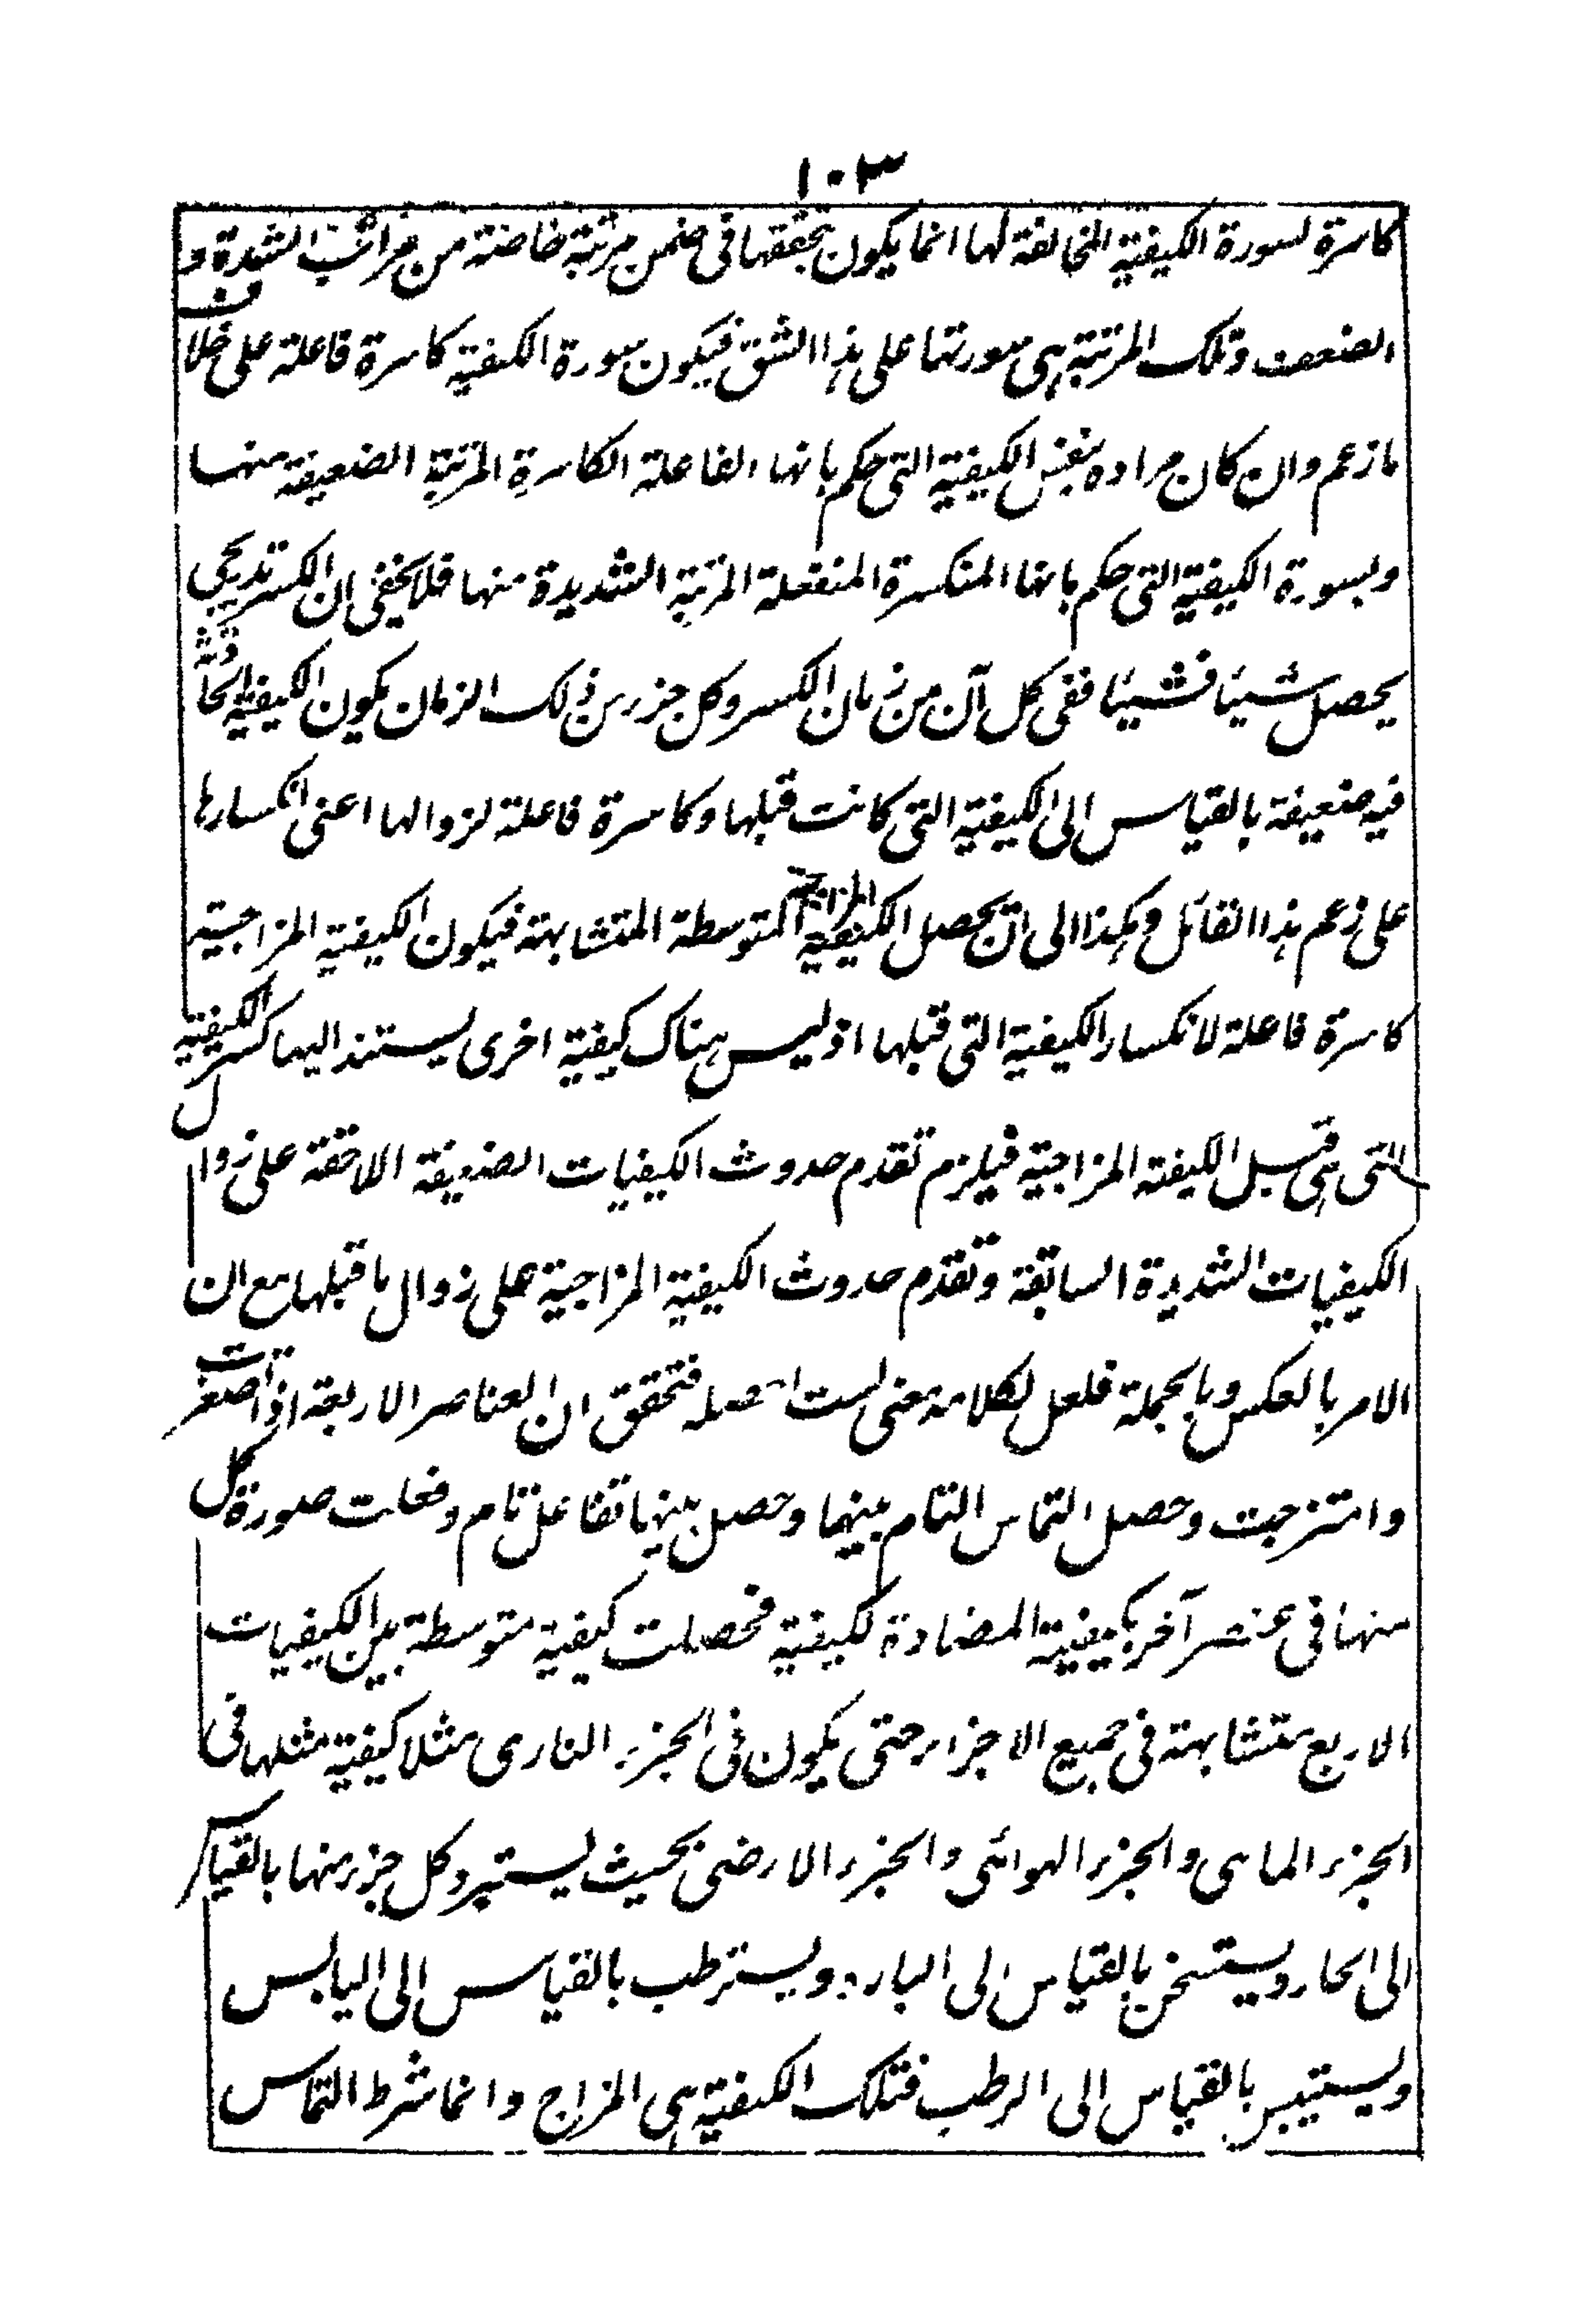 ١٠٣
كاسرة لسورة الكيفية المخالفة لها انما يكون تحققها فى ضمن مرتبة خاصة من مراتب الشدة و
الضعف وتلك المرتبة هى سورتها على هذا الشق فيكون سورة الكيفية كاسرة فاعلة على خلاف
ما زعم وان كان مراده بنفس الكيفية التى حكم بانها الفاعلة الكاسرة المرتبة الضعيفة منها
وبسورة الكيفية التى حكم بانها المنكسرة المنفعلة المرتبة الشديدة منها فلا يخفى ان الكسر تدريجى
يحصل شيئا فشيئا ففى كل آن من زمان الكسر وكل جزء من ذلك الزمان يكون الكيفية الحادثة
فيه ضعيفة بالقياس الى الكيفية التى كانت قبلها وكاسرة فاعلة لزوالها اعنى انكسارها
على زعم هذا القائل وهكذا الى ان يحصل الكيفية المزاجية المتوسطة المتشابهة فيكون الكيفية المزاجية
كاسرة فاعلة لانكسار الكيفية التى قبلها اذ ليس هناك كيفية اخرى يستند اليها كسر الكيفية
التى هى قبل الكيفية المزاجية فيلزم تقدم حدوث الكيفيات الضعيفة اللاحقة على زوال
الكيفيات الشديدة السابقة وتقدم حدوث الكيفية المزاجية على زوال ما قبلها مع ان
الامر بالعكس وبالجملة فلعل لكلامه معنى لست احصله فتحقق ان العناصر الاربعة اذا تصغرت
وامتزجت وحصل التماس التام بينها وحصل بينها تفاعل تام وفعلت صورة كل
منها فى عنصر آخر بكيفية المضادة لكيفية فحصلت كيفية متوسطة بين الكيفيات
الاربع متشابهة فى جميع الاجزاء حتى يكون فى الجزء النارى مثلا كيفية مثلها فى
الجزء المائى والجزء الهوائى والجزء الارضى بحيث يستبرد كل جزء منها بالقياس
الى الحار ويستسخن بالقياس الى البارد ويسترطب بالقياس الى اليابس
ويستيبس بالقياس الى الرطب فتلك الكيفية هى المزاج وانما شرط التماس